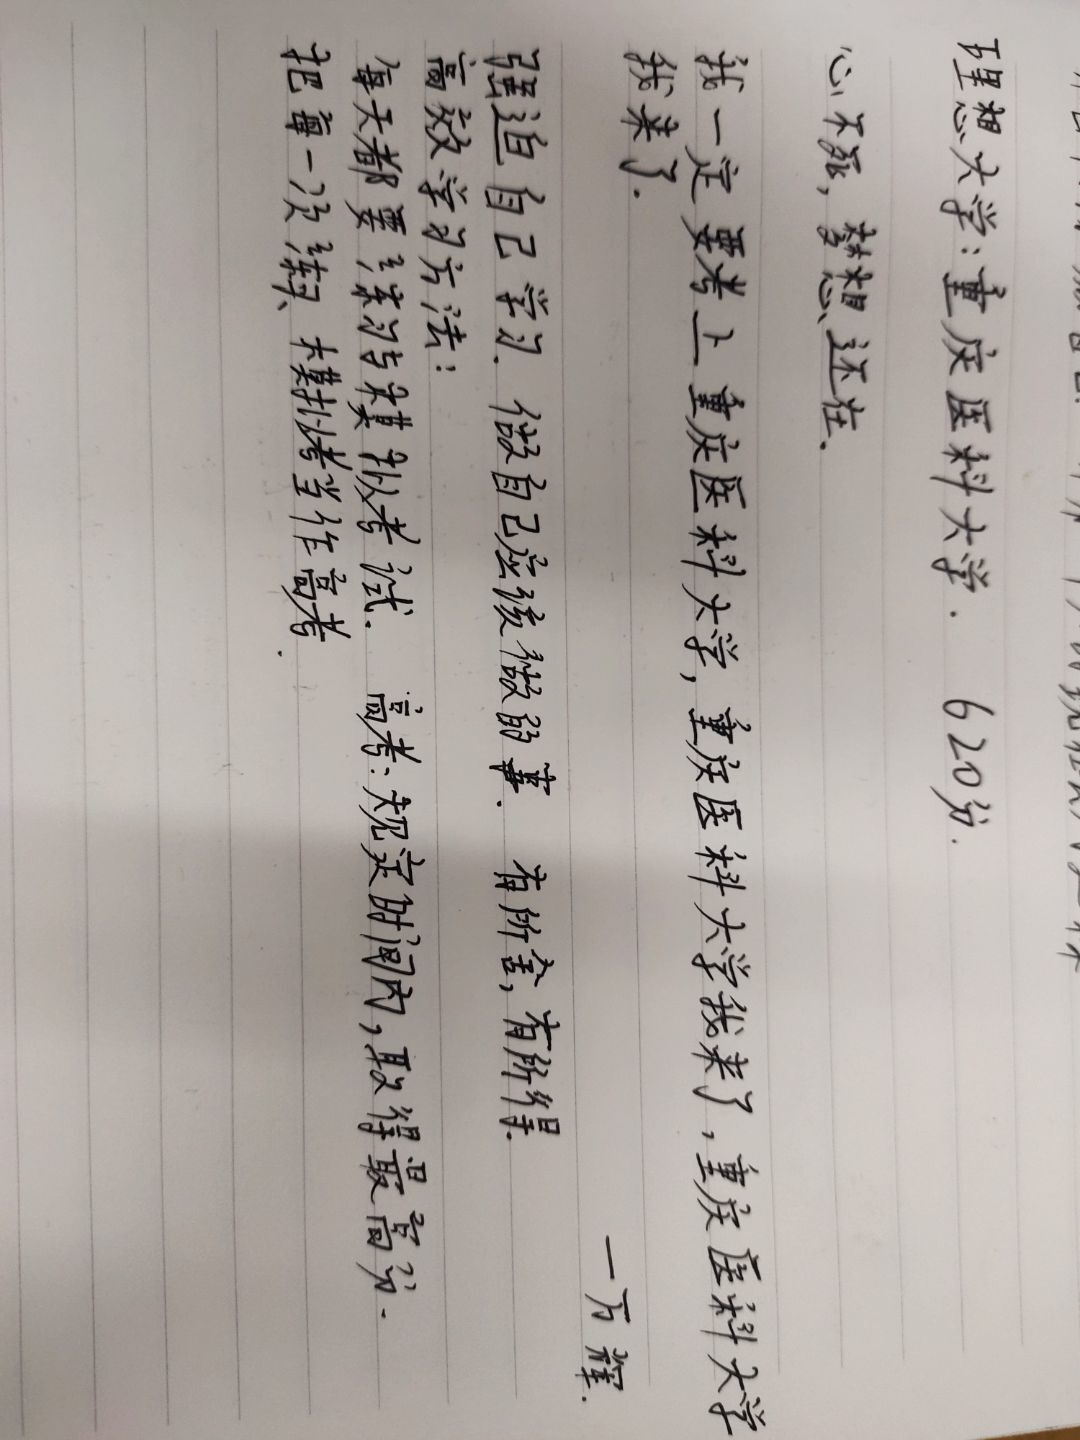 理想大学:重庆医科大学. 620分.
心不死,梦想还在.
我一定要考上重庆医科大学,重庆医科大学我来了,重庆医科大学
我来了.
一万辉.
强迫自己学习. 做自己应该做的事. 有所舍,有所得.
高效学习方法:
每天都要练习与模拟考试. 高考:规定时间内,取得最高分.
把每一次练习、模拟考当作高考.